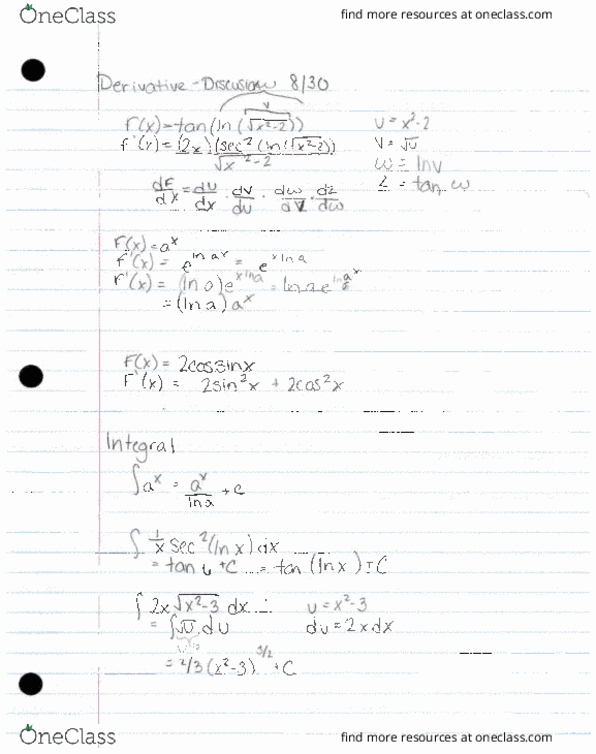 OneClass
find more resources at oneclass.com
Derivative - Discussion 8/30
v
F(x) = tan(ln(√x²-2)) u = x²-2
f'(x) = (2x)(sec²(ln√x²-2)) v = √u
√x²-2 w = lnv
z = tan w
dF/dx = du/dx · dv/du · dw/dv · dz/dw
F(x) = aˣ
f'(x) = e^ln aˣ = e^x ln a
F'(x) = (ln a)e^x ln a = ln a e^ln aˣ
= (ln a) aˣ
F(x) = 2cosxsinx
F'(x) = 2sin²x + 2cos²x
Integral
∫aˣ = aˣ/ln a + c
∫ 1/x sec²(ln x) dx
= tan u + C = tan (ln x) + C
∫ 2x √x²-3 dx u = x²-3
= ∫√u du du = 2x dx
= 2/3 (x²-3)^3/2 + C
OneClass
find more resources at oneclass.com